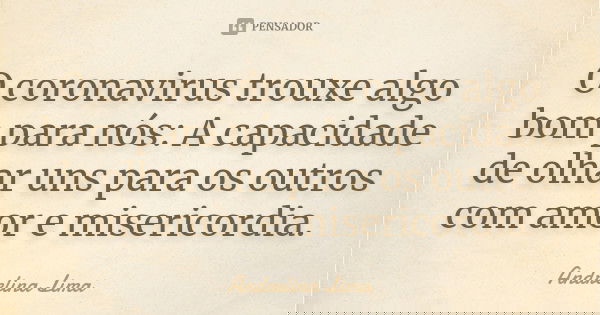 PENSADOR
O coronavirus trouxe algo
bom para nós: A capacidade
de olhar uns para os outros
com amor e misericordia.
Andrelina Lima